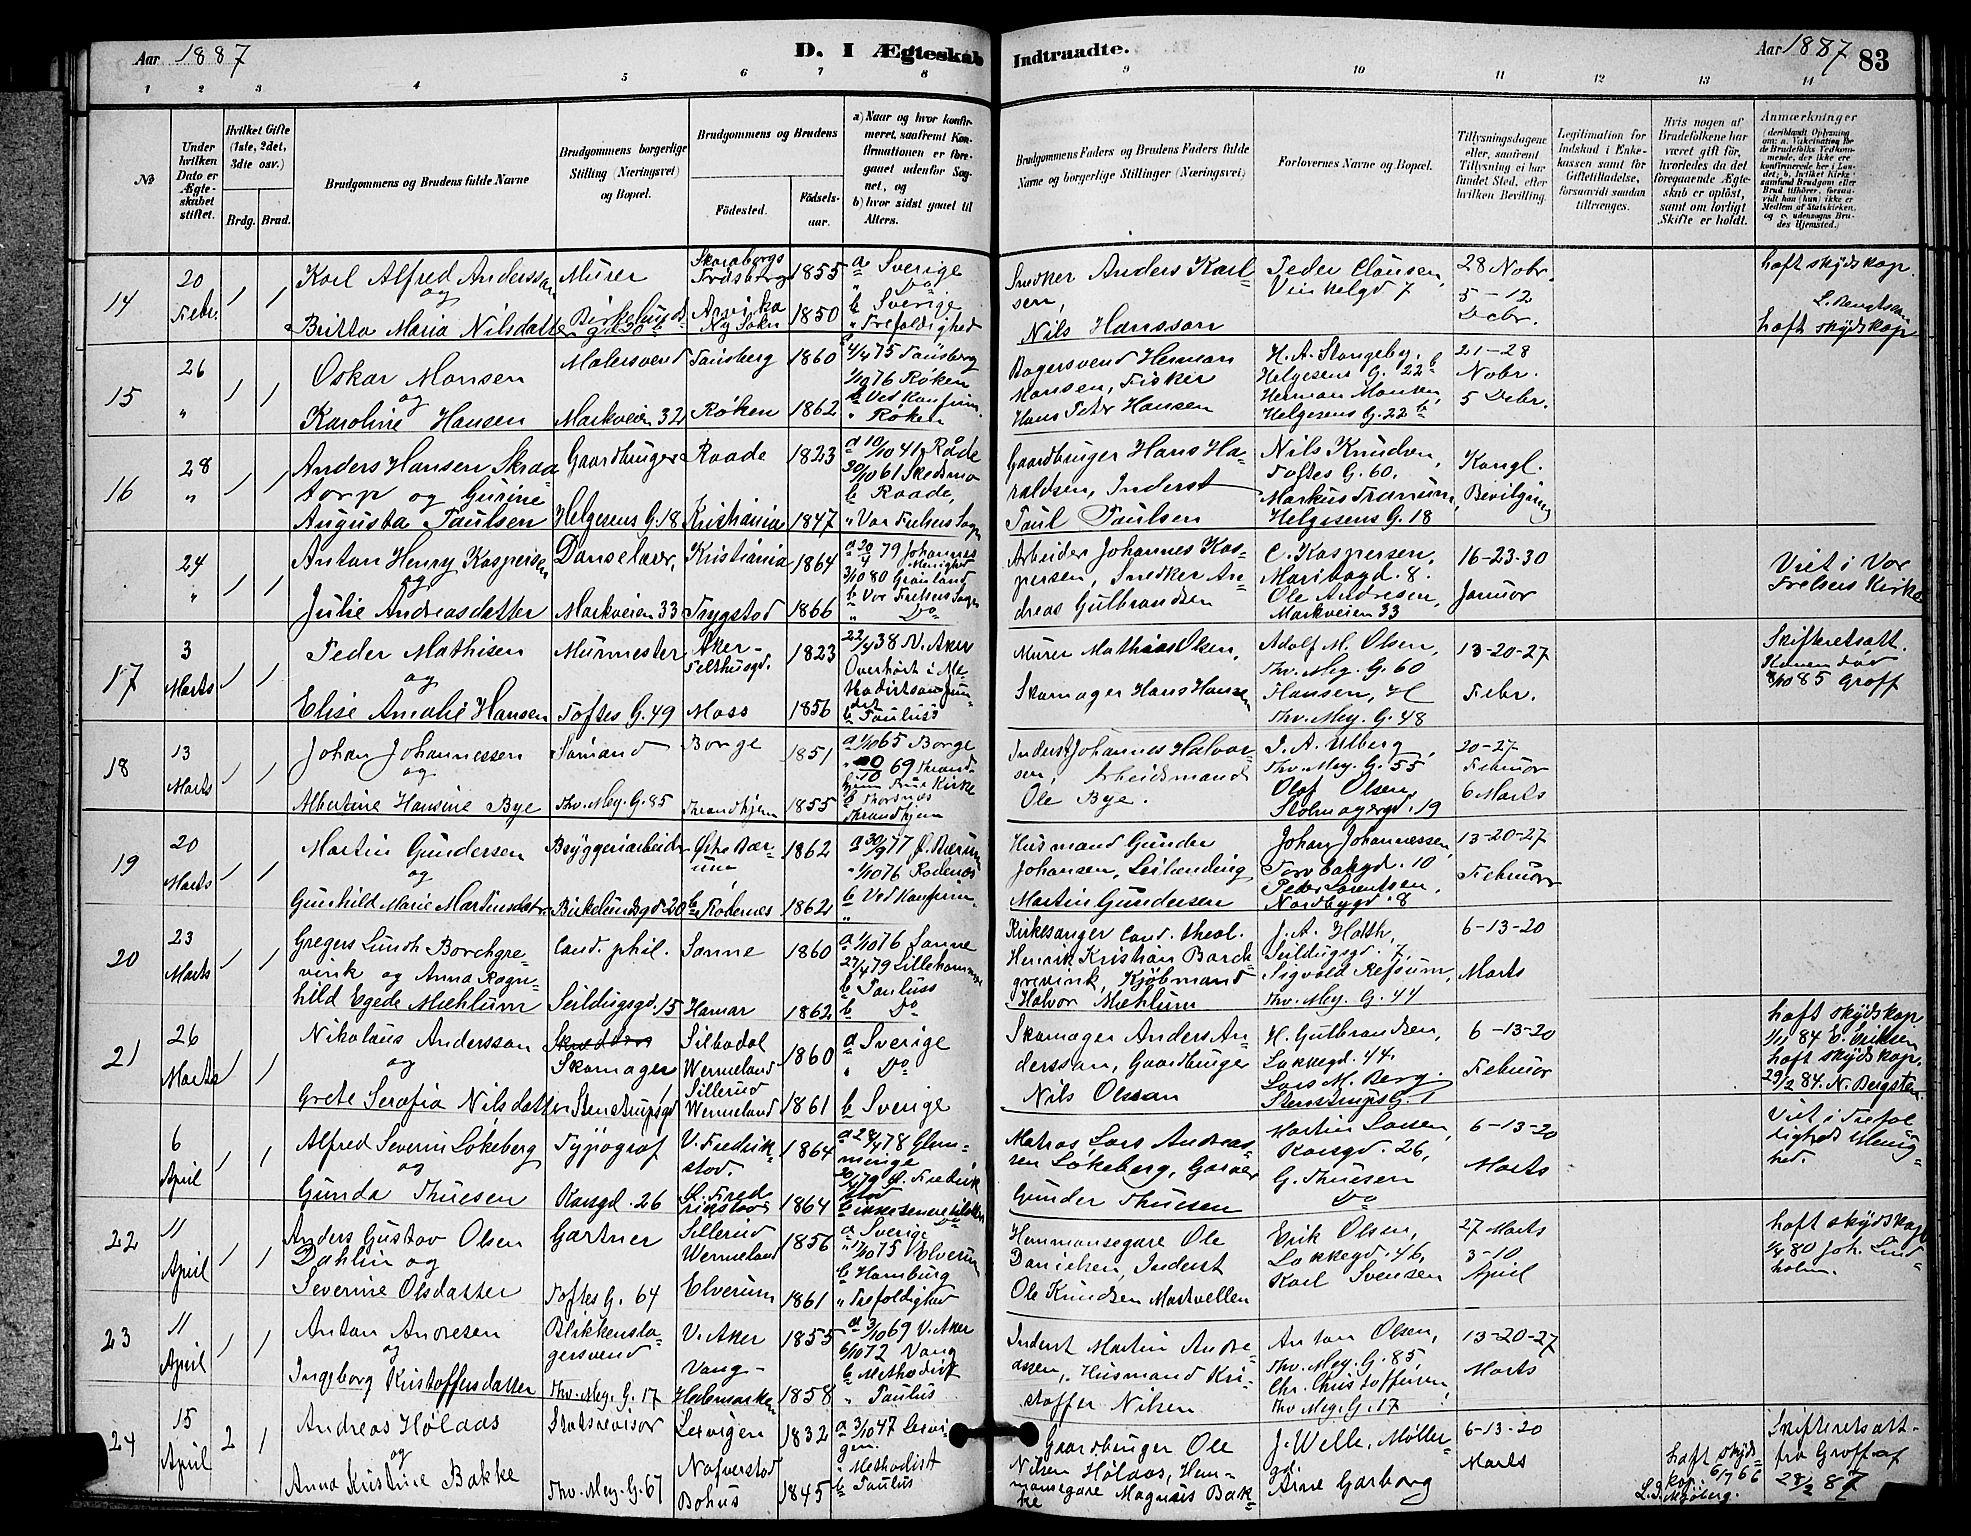 Aar 1887 D. I Ægteskab Indtraadte. Aar 1887 83
1 2 3 4 5 6 7 8 9 10 11 12 13 14
№
Under hvilken Dato er Ægteskabet stiftet.
Hvilket Gifte (1ste, 2det, 3die osv.)
Brdg. Brud.
Brudgommens og Brudens fulde Navne
Brudgommens borgerlige Stilling (Næringsvei) og Bopæl.
Brudgommens og Brudens
Födested. Födselsaar.
a) Naar og hvor konfirmeret, saafremt Konfirmationen er foregaaet udenfor Sognet, og
b) hvor sidst gaaet til Alters.
Brudgommens Faders og Brudens Faders fulde Navne og borgerlige Stillinger (Næringsvei)
Forlovernes Navne og Bopæl.
Tillysningsdagene eller, saafremt Tillysning ei har fundet Sted, efter hvilken Bevilling.
Legitimation for Indskud i Enkekassen samt for Giftetilladelse, forsaavidt saadan tiltrænges.
Hvis nogen af Brudefolkene har været gift för, hvorledes da det foregaaende Ægteskab er oplöst, samt om lovligt Skifte er holdt.
Anmærkninger
14
20 Febr. 1 1
Karl Alfred Andersson
og
Britta Maria Nilsdatter
Murer
Birkelundsgd 20 b
Skaraborgs
1855
Arvika Ny Sokn 1850
a Sverige
" Do
b Sverige
" Trefoldighed
Snedker Anders Karlsen,
Nils Hansson
Peder Clausen,
Vinkelgd 7
28 Nobr.
5-12
Debr.
haft skydskap.
L. Bengtson
haft skydskap
15
26 " 1 1
Oskar Monsen
og
Karoline Hansen
Malersvend
Markveien 32
Tønsberg 1860
Røken 1862
a 4/4 75 Tønsberg
1/10 76 Røken
b Ved Konfirm.
" Røken
Bagersvend Herman
Monsen, Fisker
Hans Peter Hansen
H. A. Stangeby,
Helgesens G. 22 b
Herman Monsen,
Helgesens G. 22 b
21-28
Nobr.
5 Debr.
16
28 " 1 1
Anders Hansen Skraa
torp og Gurine
Augusta Paulsen
Gaardbruger
Helgesens G. 18
Raade 1823
Kristiania 1847
a 10/10 41 Råde
30/10 61 Skedsmo
b Raade,
" Vor Frelsers Sogn
Gaardbruger Hans Haraldsen, Inderst
Paul Paulsen
Nils Knudsen,
Toftes G. 60.
Markus Tranum,
Helgesens G. 18
Kongl.
Bevilgning
24 " 1 1
Anton Henry Kaspersen
og
Julie Andreasdatter
Danselærer,
Markveien 33
Kristiania 1864
Trygstad 1866
a 20/4 79 Johannes Menighed
3/10 80 Grønland
b Vor Frelsers Sogn
" Do
Arbeider Johannes Kaspersen, Snedker Andreas Gulbrandsen
C. Kaspersen,
Maribogd. 8.
Ole Andresen,
Markveien 33
16-23-30
Januar
Viet i Vor
Frelsers Kirke
17
3 Marts 1 1
Peder Mathisen
og
Elise Amalie Hansen
Murmester,
Toftes G. 49
Aker-
Felthusgd. 1823
Moss 1856
22/4 38 V. Aker
Overhørt i Methodistsamfundet
b Paulus
Murer Mathias Olsen,
Skomager Hans Hansen
Adolf M. Olsen,
Thv. Mey. G. 60
Hansen, H
Thv. Mey. G. 48
13-20-27
Febr.
Skifteretsatt.
Konen død
8/10 85 Groff
18
13 Marts 1 1
Johan Johannessen
og
Albertine Hansine Bye
Sømand
Thv. Mey. G. 85
Borge 1851
Throndhjem 1855
a 1/10 65 Borge
69 Throndhjem Frue Kirke
b
Throndhjem
Inderst Johannes Halvorsen, Arbeidsmand
Ole Bye.
J. A. Ulberg,
Thv. Mey. G. 55
Olaf Olsen,
Stolmagergd. 19
20-27
Februar
6 Marts
19
20 Marts 1 1
Martin Gundersen
og
Gunhild Marie Martinsdatter
Bryggeriarbeider
Birkelundsgd 20 b
Østre Bærum 1862
Rødenes 1862
a 30/9 77 Ø. Bærum
" 1/10 76 Rødenes
b Ved Konfirm.
"
Husmand Gunder
Johansen, Leilænding
Martin Gundersen
Johan Johannessen,
Torvbakgd. 10
Peder Lorentsen,
Nordbygd. 8
13-20-27
Februar
20
23 Marts 1 1
Gregers Lundh Borchgrevink og Anna Ragnhild Egede Mæhlum
Cand. phil.
Seildugsgd. 15
Sanne 1860
Hamar 1862
a 1/10 76 Sanne
27/4 79 Lillehammer
b Paulus
b Do
Kirkesanger Cand. theol.
Henrik Kristian Borchgrevink, Kjøbmand
Halvor Mæhlum
J. A. Holth,
Seildugsgd. 7,
Sigvald Refsum,
Thv. Mey. G. 44
6-13-20
Marts
21
26 Marts 1 1
Nikolaus Andersson
og
Grete Serafia Nilsdatter
Skomager
Stenstrupsgd 1
Silbodal
Wermeland 1860
Sillerud
Wermeland 1861
a Sverige
" Do
b Sverige
Skomager Anders Anderssen, Gaardbruger
Nils Olsson
H. Gulbrandsen,
Lakkegd. 44.
Lars M. Berg.
Stenstrups G. 1
6-13-20
Februar
haft skydskap.
1/11 84 E. Eriksen
haft skydskap.
29/2 84. N. Bergsten
6 April 1 1
Alfred Severin Løkeberg
og
Gunda Thuesen
Typograf
Korsgd. 26
V. Fredrikstad. 1864
Ø. Fredrikstad 1864
a 28/4 78 Glemminge
20/4 79 Ø. Fredrikstad
b ikke senere til Alters
Do
Matros Lars Andreassen Løkeberg, Garver
Gunder Thuesen
Martin Larsen,
Korsgd. 26,
G. Thuesen
Do
6-13-20
Marts
Viet i Trefoldigheds Menighed.
22
11 April 1 1
Anders Gustav Olsen
Dahlin og
Severine Olsdatter
Gartner
Toftes G. 64
Sillerud
Wermeland 1856
Elverum 1861
a Sverige
1/10 75 Elverum
b Hamburg
" Trefoldighed
Hemmansegare Ole
Danielsen, Inderst
Ole Knudsen Martvellen
Erik Olsen,
Lakkegd. 46,
Karl Svensen
27 Marts
3-10
April
haft skydskap
1/4 80 Joh. Lindholm.
23
11 April 1 1
Anton Andresen
og
Ingeborg Kristoffersdatter
Blikkenslagersvend
Thv. Mey. G. 17
V. Aker 1855
Vang-
Hedemarken 1858
a 3/10 69 V. Aker
6/10 72 Vang
b Methodist
" Paulus
Inderst Martin Andreassen, Husmand Kristoffer Nilsen
Anton Olsen,
Thv. Mey. G. 85,
Chr. Christoffersen,
Thv. Mey. G. 17
13-20-27
Marts
24
15 April 2 1
Andreas Hølaas
og
Anna Kristine Bakke
Statsrevisor
Thv. Mey. G. 67
Lexvigen 1832
Nafverstad
Bohus 1845
a 3/10 47 Lexvigen.
" Methodist
b Paulus
Gaardbruger Ole
Nilsen Hølaas, Hemmansegare Magnus Bakke
J. Welle, Møllergd.
Arne Garborg
6-13-20
Marts
haft skydskap. 6/7 66
L. J. Mjøberg.
Skifteretsatt.
fra Groff af
28/2 87